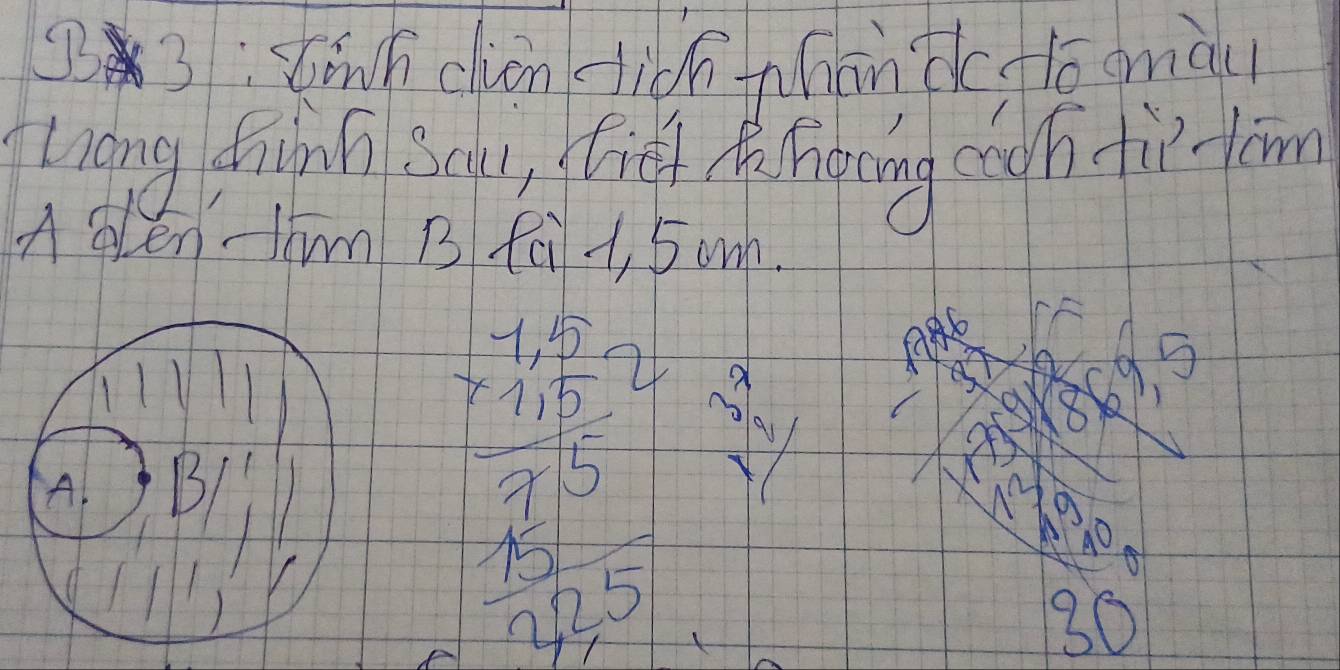 B 3 : Tính diện tích phần đc tô màu
trong hình sau, biết khoảng cách từ tâm
A đến tâm B là 1,5 cm.
1,5
× 1,5 2
75
15
2,25
A.
B
9,5
30